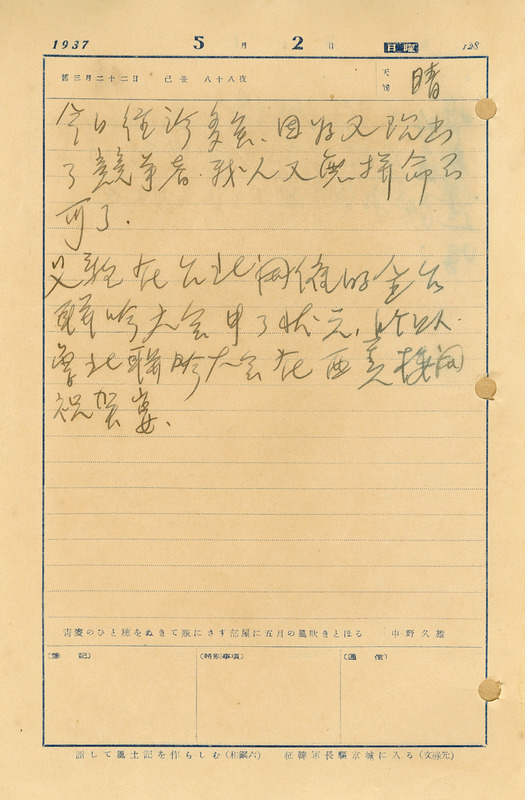 1937 5月2日 日曜 128
舊三月二十二日 己丑 八十八夜 天候 晴
今日往診多忙、因好又現出
了競爭者、我人又無拼命不
可了.
父親在台北開催的全台
聯吟大会中了狀元, 所以
台北聯吟大会在西美樓開
祝賀宴、
青麥のひと穗をぬきて瓶にさす部屋に五月の風吹きとほる 中野久雄
(雜記) (特別事項) (通信)
詔して風土記を作らしむ(和銅六) 征韓軍長驅京城に入る(文祿元)